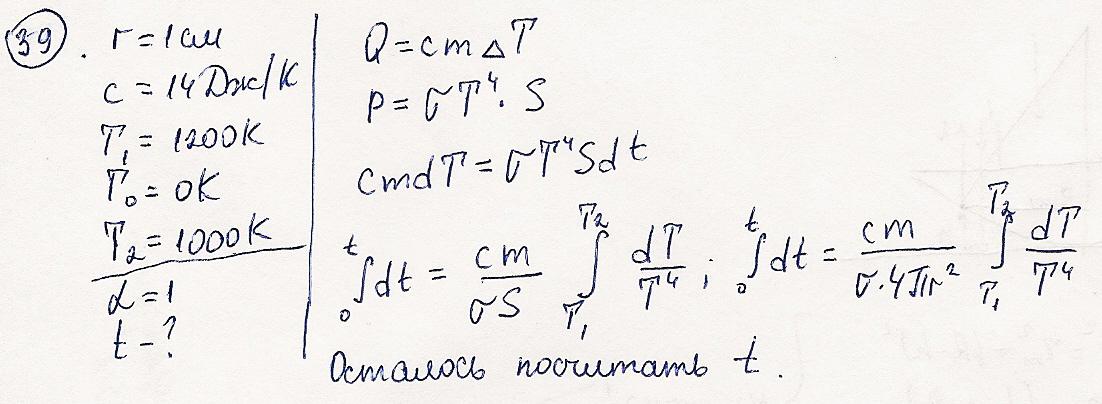 39. r = 1 см
c = 14 Дж/К
T₁ = 1200К
T₀ = 0К
T₂ = 1000К
α = 1
t - ?
Q = cm△T
P = σT⁴·S
cmdT = σT⁴Sdt
₀∫ᵗ dt = cm/σS ∫_{T₁}^{T₂} dT/T⁴ ; ₀∫ᵗ dt = cm/σ·4πr² ∫_{T₁}^{T₂} dT/T⁴
Осталось посчитать t.